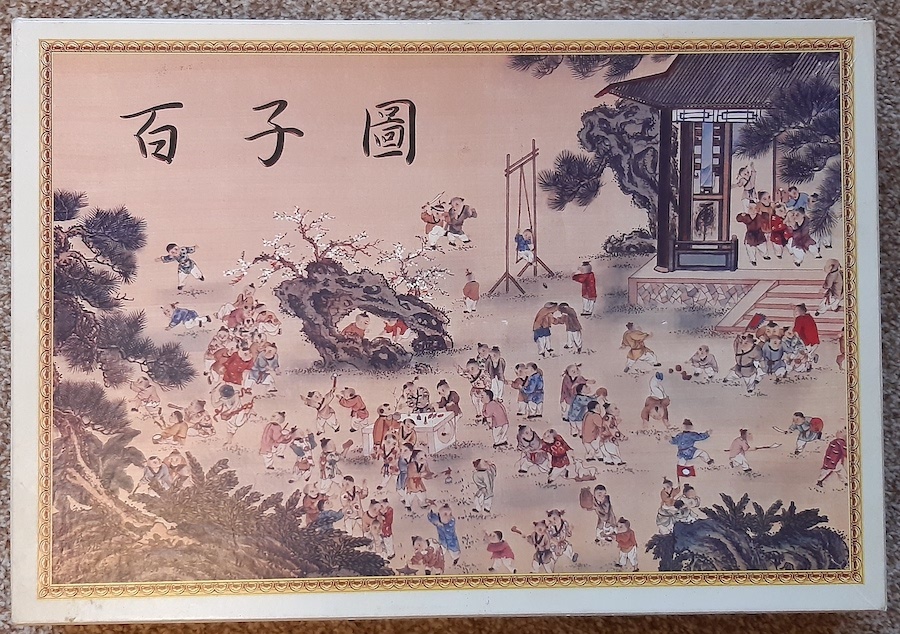 百子圖